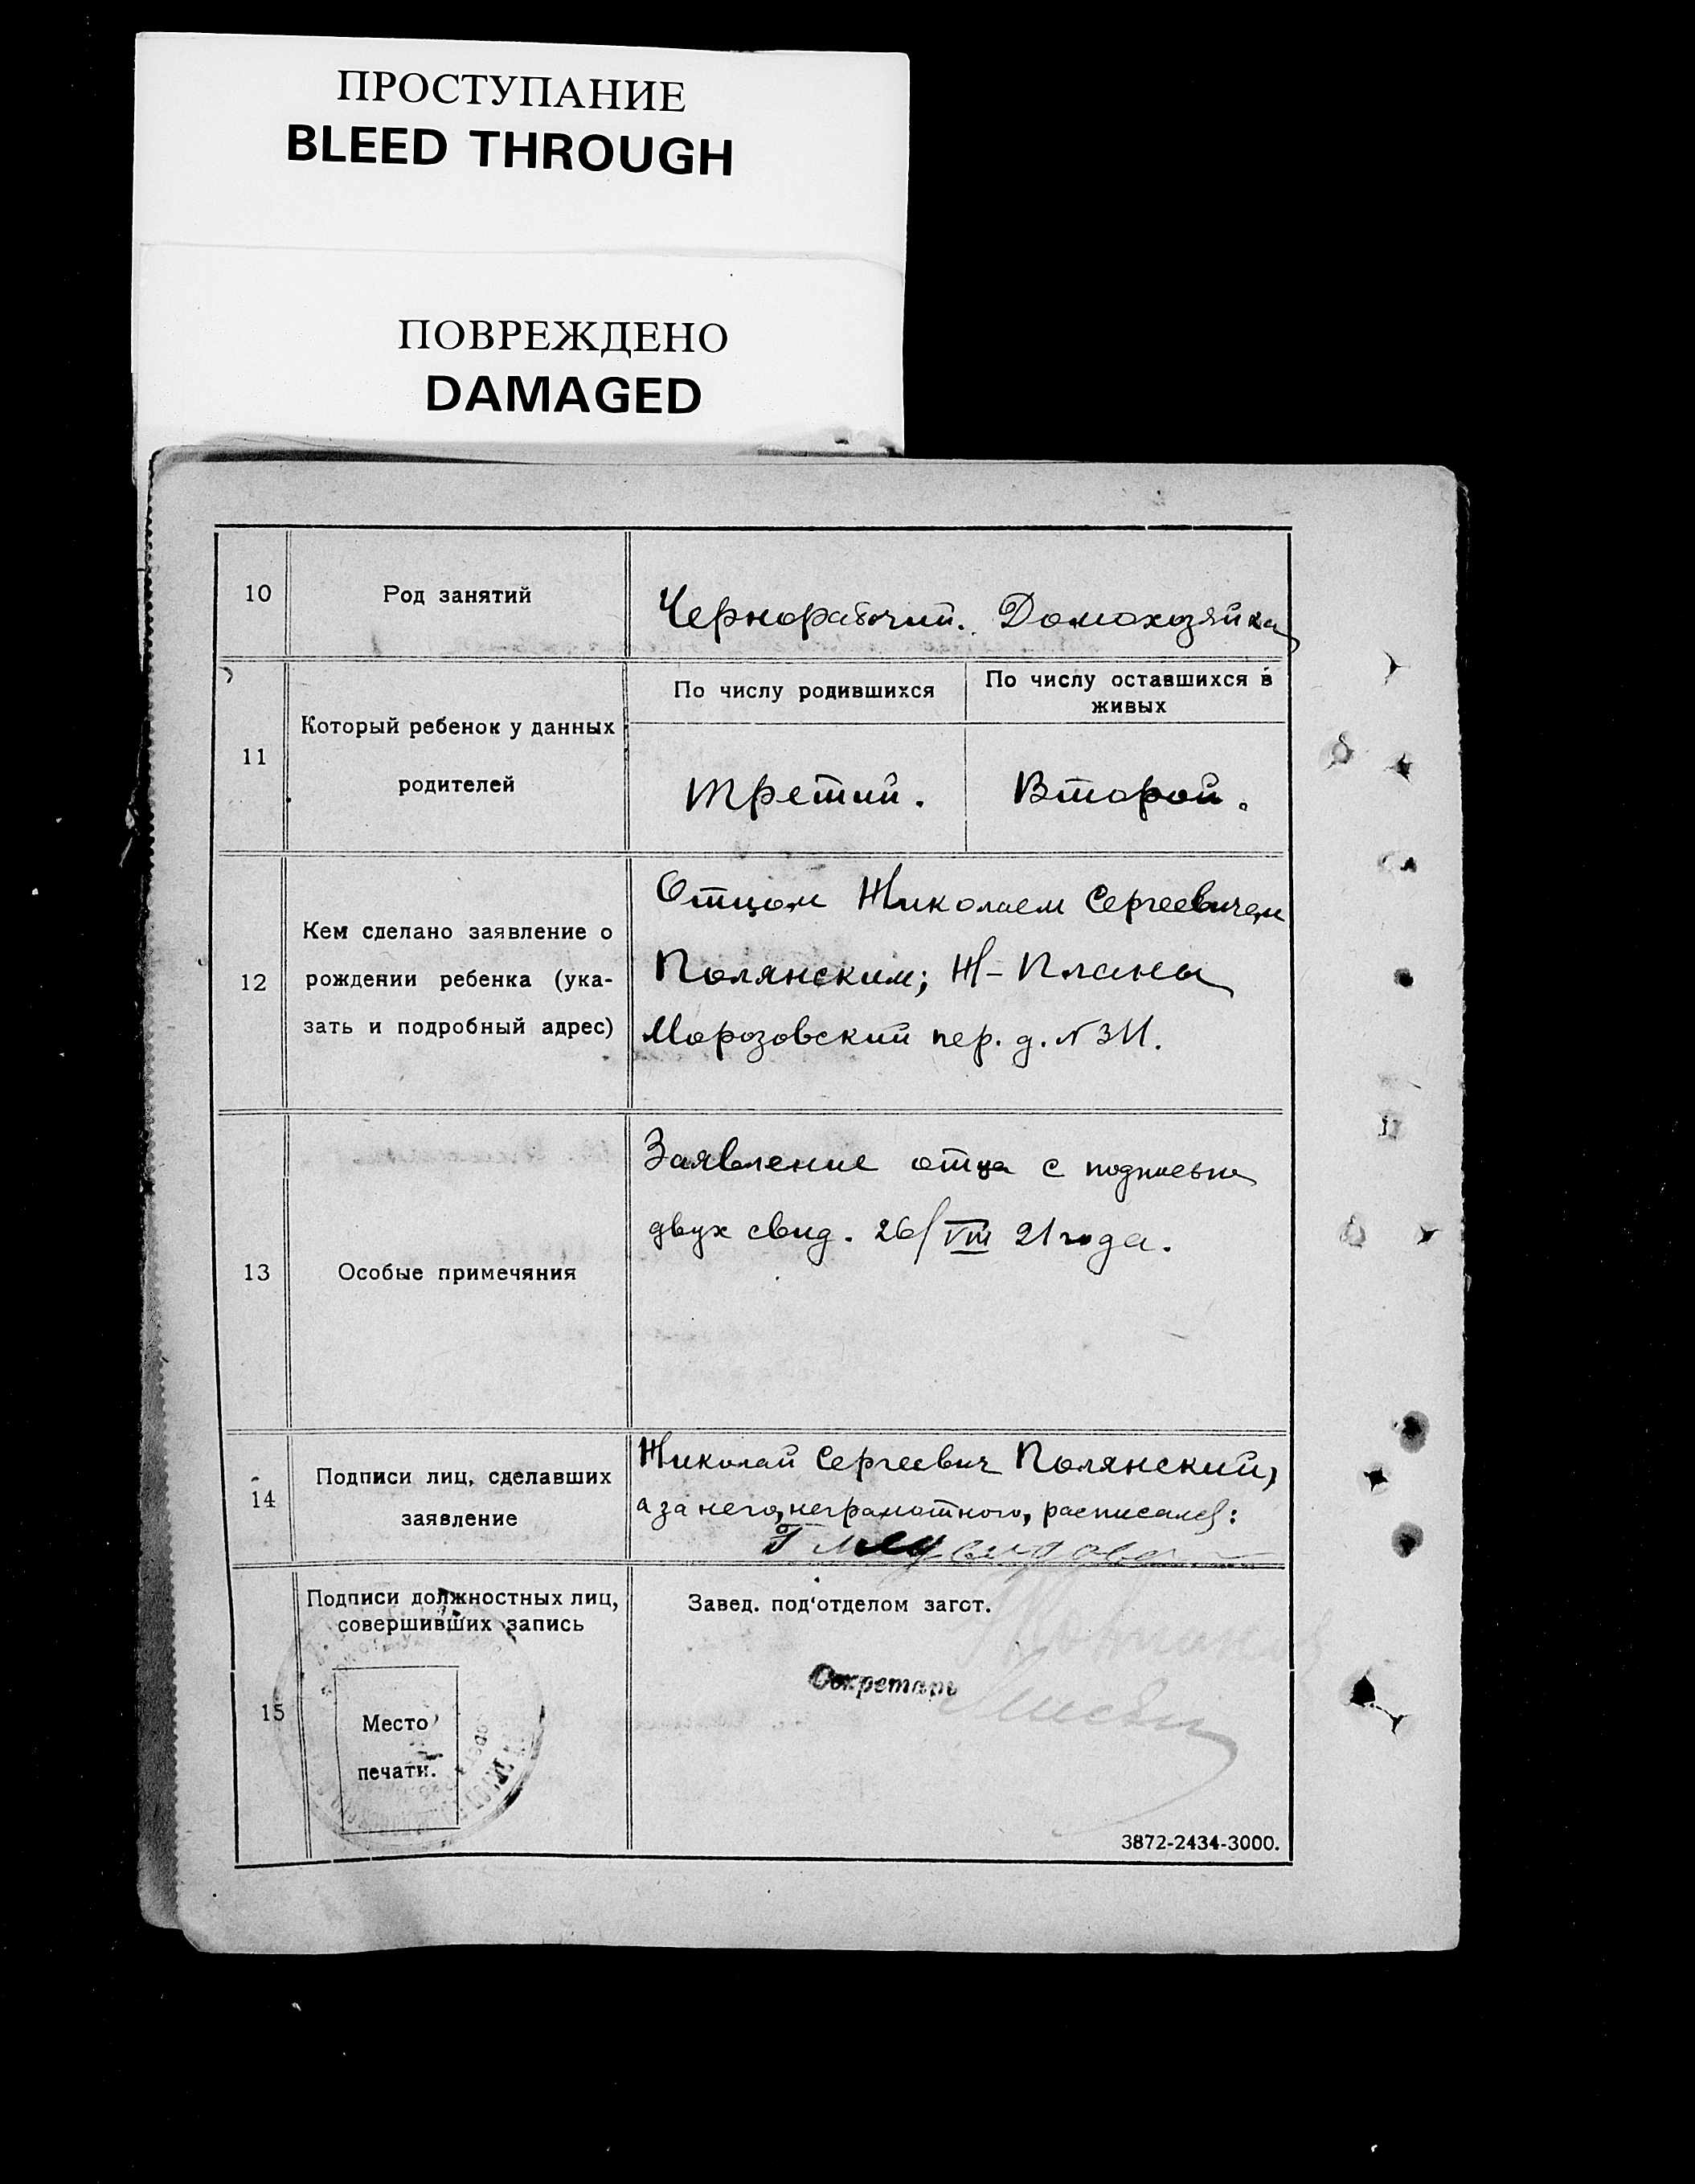 ПРОСТУПАНИЕ
BLEED THROUGH
ПОВРЕЖДЕНО
DAMAGED
10
Род занятий
Чернорабочий. Домохозяйка
11
Который ребенок у данных
родителей
По числу родившихся
По числу оставшихся в
живых
третий.
Второй.
12
Кем сделано заявление о
рождении ребенка (ука-
зать и подробный адрес)
Отцом Николаем Сергеевичем
Полянским; Н-Планы
Морозовский пер. д. №
13
Особые примечяния
Заявление отца с подписью
двух свид. 26/VIII 21 года.
14
Подписи лиц, сделавших
заявление
Николай Сергеевич Полянский,
а за него, неграмотного, расписался:
15
Подписи должностных лиц,
совершивших запись
Место
печати.
Завед. под'отделом загст.
Секретарь
3872-2434-3000.